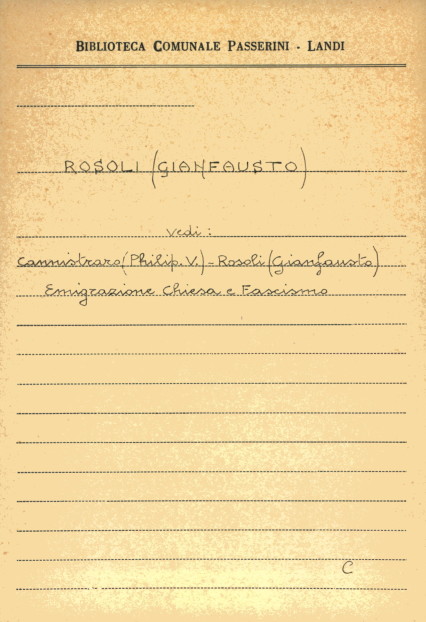 BIBLIOTECA COMUNALE PASSERINI - LANDI
ROSOLI (GIANFAUSTO)
Vedi:
Cannistraro (Philip. V.) - Rosoli (Gianfausto)
Emigrazione Chiesa e Fascismo
C